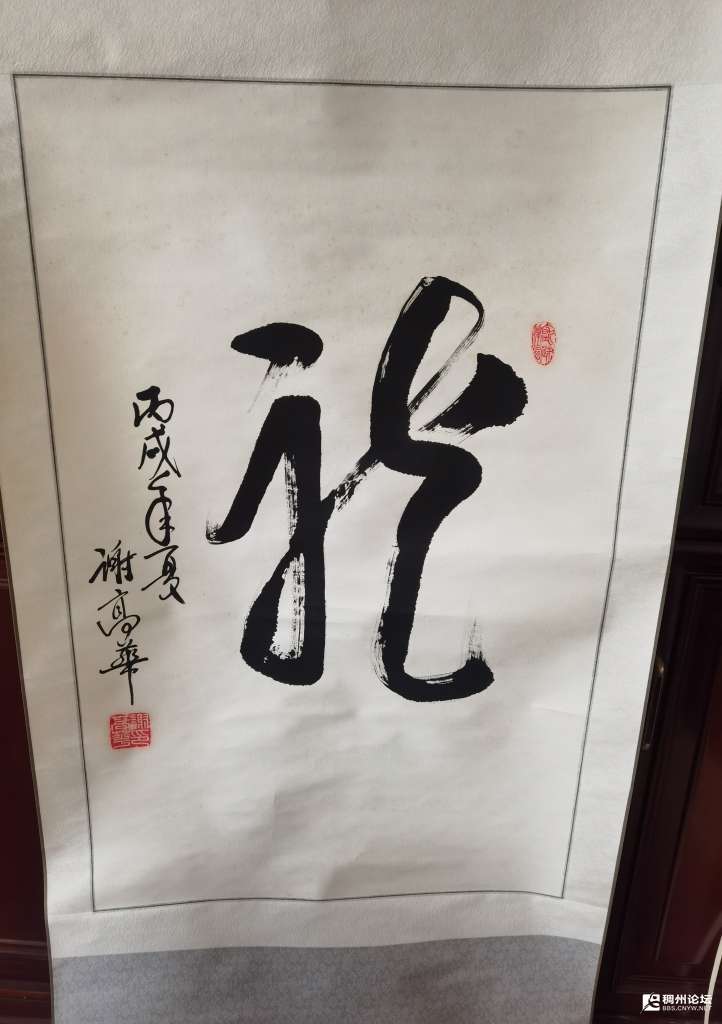 龍
丙戌年夏
谢高華
稠州论坛
BBS.CNYW.NET